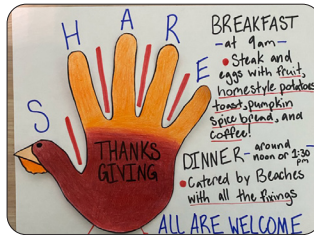 SHARE
THANKS
GIVING
BREAKFAST
- at 9am -
• Steak and
eggs with fruit,
homestyle potatoes
toast, pumpkin
spice bread, and
coffee!
DINNER - around
noon or 1:30
pm
• Catered by Beaches
with all the fixings
ALL ARE WELCOME